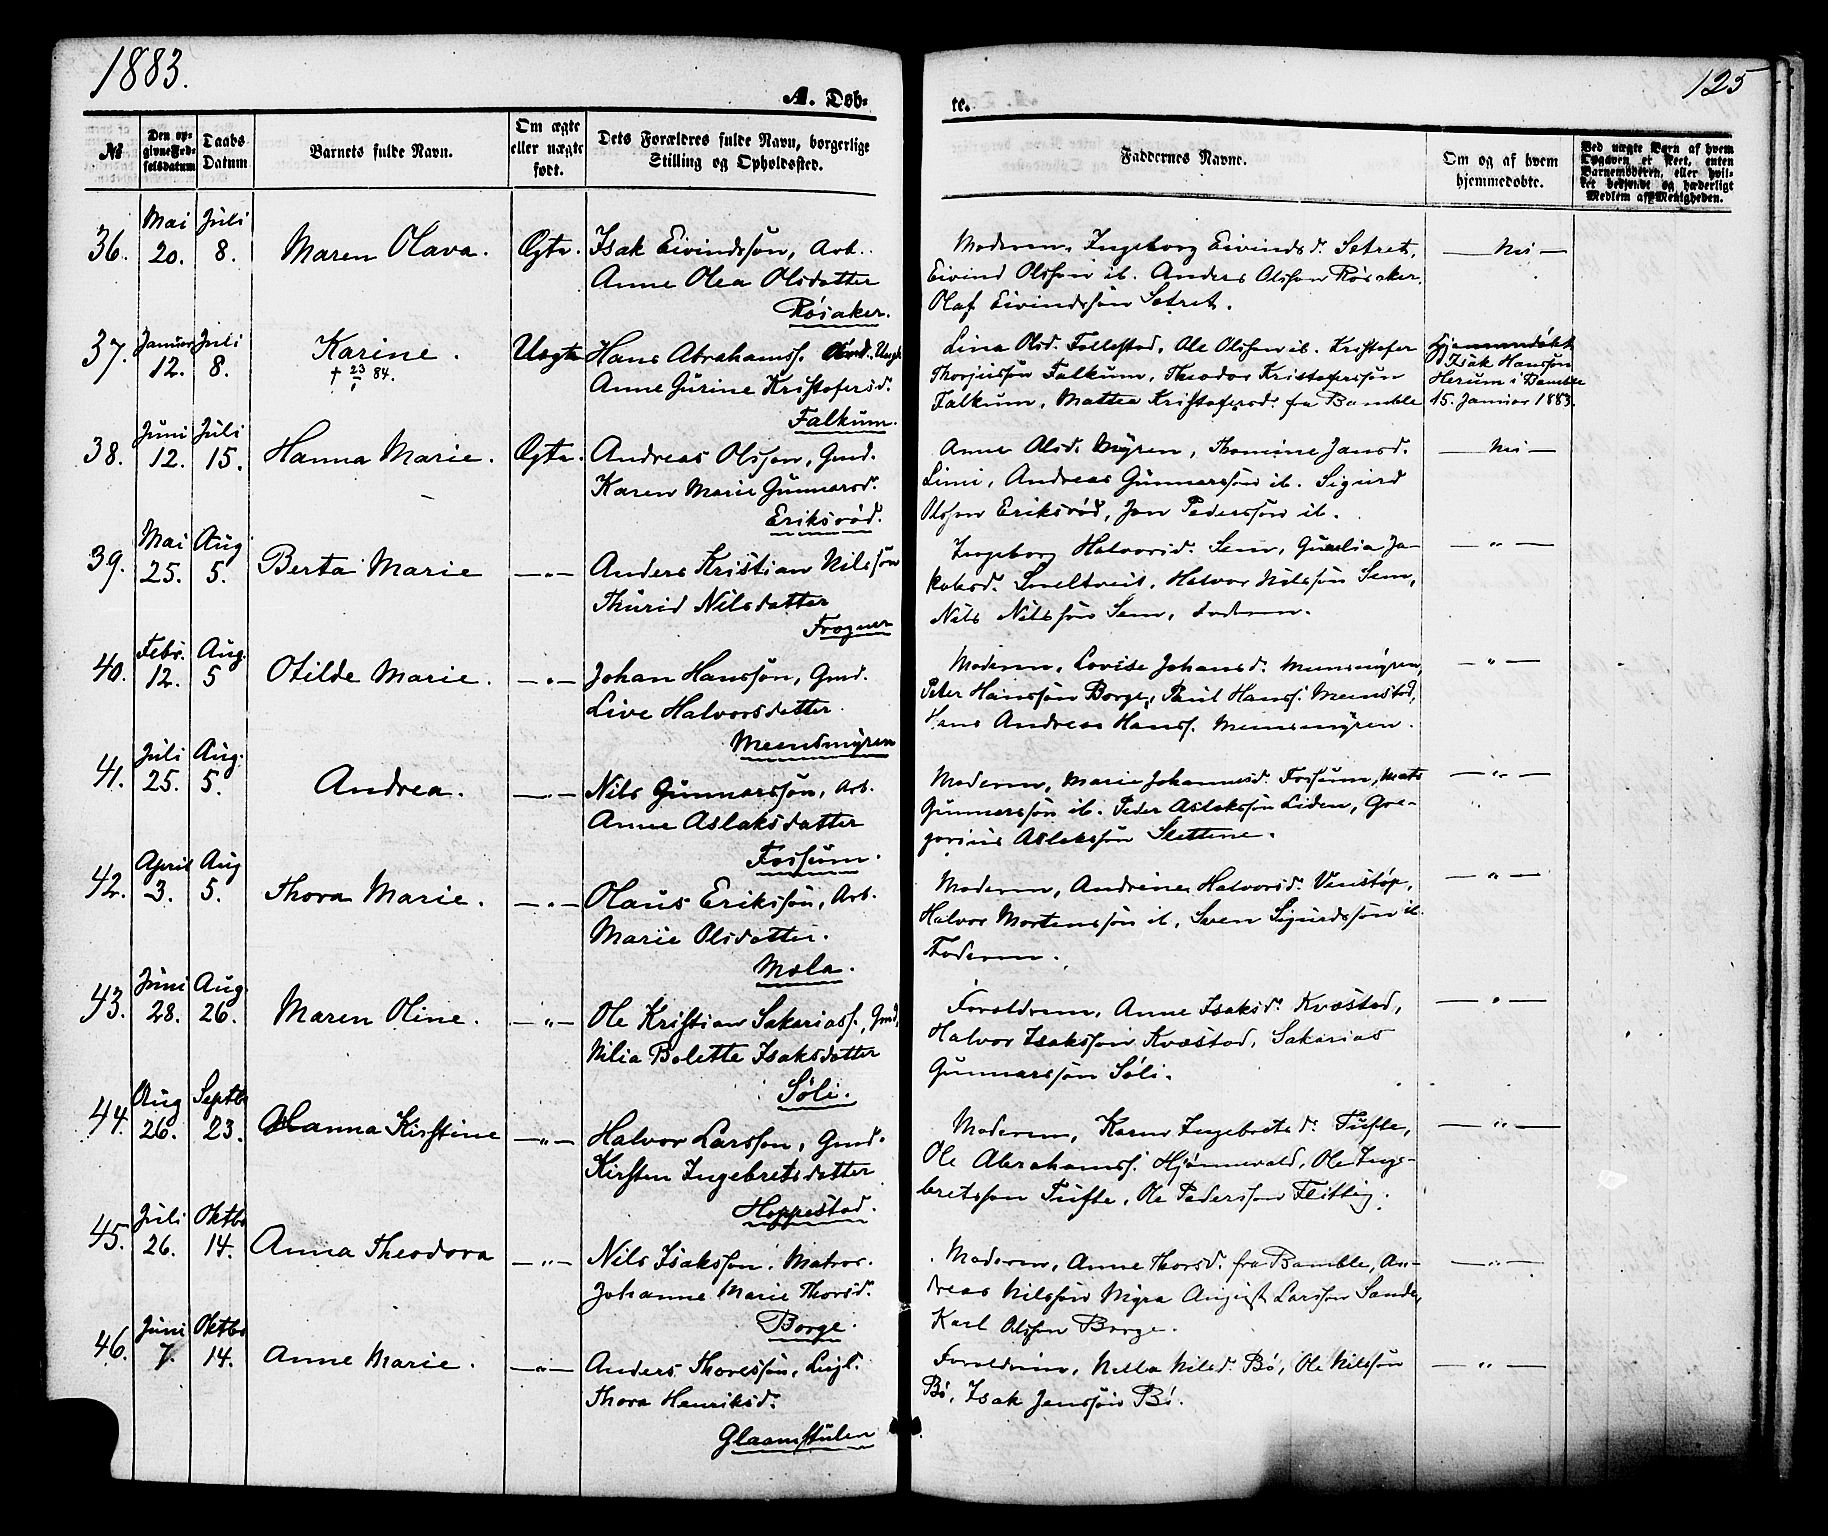 1883.
A. Døb-
te.
125
№
Den op-
givne Fød-
selsdatum
Daabs
Datum
Barnets fulde Navn.
Om ægte
eller uægte
født.
Dets Forældres fulde Navn, borgerlige
Stilling og Opholdssted.
Faddernes Navne.
Om og af hvem
hjemmedøbte.
Ved uægte Barn af hvem
Opgaven er skeet, enten
Barnemoderen, eller hvil-
ket bekjendt og hæderligt
Medlem af Menigheden.
36.
Mai
20.
Juli
8.
Maren Olava.
Ægte.
Isak Eivindssøn, Arb.
Anne Olea Olsdatter
Røsaker.
Moderen, Ingeborg Eivindsd. Sætret,
Eivind Olssøn ib. Anders Olssøn Røsaker,
Olaf Eivindssøn Sætret.
— Nei —
37.
Januar
12.
Juli
8.
Karine.
† 23 84.
Uægte
Hans Abrahamss. Ungk.
Anne Gurine Kristofersd.
Falkum.
Lina Olsd. Follestad, Ole Olssøn ib. Kristofer
Thorjussøn Falkum, Theodor Kristoferssøn
Falkum, Mathea Kristofersd. fra Bamble
Hjemmedøbt
Isak Hanssøn
Herum i Bamble
15. Januar 1883.
38.
Juni
12.
Juli
15.
Hanna Marie.
Ægte.
Andreas Olsson, Gmd.
Karen Marie Gunnarsd.
Eriksrød.
Anne Olsd. Myren, Thomine Jansd.
Limi, Andreas Gunnarssøn ib. Sigurd
Olssøn Eriksrød, Jon Pederssøn ib.
— Nei —
39.
Mai
25.
Aug
5.
Berta Marie
— „ —
Anders Kristian Nilssøn
Thurid Nilsdatter
Frogner
Ingeborg Halvorsd. Sem, Gunilia Ja-
kobsd. Smeltveit, Halvor Nilssøn Sem,
Nils Nilssøn Sem, Faderen.
— „ —
40.
Febr.
12.
Aug.
5
Otilde Marie.
— „ —
Johan Hanssøn, Gmd.
Live Halvorsdatter.
Meensmyren
Moderen, Lovise Johansd. Meensmyren,
Peter Hanssøn Borge, Paul Hanss. Meenstad,
Hans Andreas Hanss. Meensmyren.
— „ —
41.
Juli
25.
Aug.
5.
Andrea.
— „ —
Nils Gunnarssøn, Arb.
Anne Aslaksdatter
Fossum.
Moderen, Marie Johannesd. Fossum, Mats
Gunnarssøn ib. Peder Aslakssøn Liden, Gre-
gorius Aslakssøn Slettene.
— „ —
42.
April
3.
Aug
5.
Thora Marie.
— „ —
Olaus Erikssøn, Arb.
Marie Olsdatter.
Mæla.
Moderen, Andrine Halvorsd. Venstøp,
Halvor Mortenssøn ib, Sven Sigurdssøn ib.
Faderen.
— „ —
43.
Juni
28.
Aug.
26.
Maren Oline.
— „ —
Ole Kristian Sakariass., Gmd,
Nilia Bolette Isaksdatter
Søli.
Forældrene, Anne Isaksd. Kvæstad,
Halvor Isakssøn Kvæstad, Sakarias
Gunnarssøn Søli.
— „ —
44.
Aug
26.
Septbr
23.
Hanna Kirstine
— „ —
Halvor Larssøn, Gmd.
Kirsten Ingebretsdatter
Hoppestad.
Moderen, Karen Ingebretsd. Tufte,
Ole Abrahamss. Hjønnevald, Ole Inge-
bretssøn Tufte, Ole Pederssøn Flittig.
— „ —
45.
Juli
26.
Oktbr
14.
Anna Theodora
— „ —
Nils Isakssøn, Matros.
Johanne Marie Thorsd.
Borge.
Moderen, Anne Thorsd. fra Bamble, An-
dreas Nilssøn Myra August Larssøn Sande,
Karl Olssøn Borge.
— „ —
46.
Juni
7.
Oktbr
14.
Anne Marie.
— „ —
Anders Thoressøn, Leigl.
Thora Henriksd.
Glaamstulen
Forældrene, Nella Nilsd. Bø, Ole Nilssøn
Bø, Isak Jenssøn Bø.
— „ —